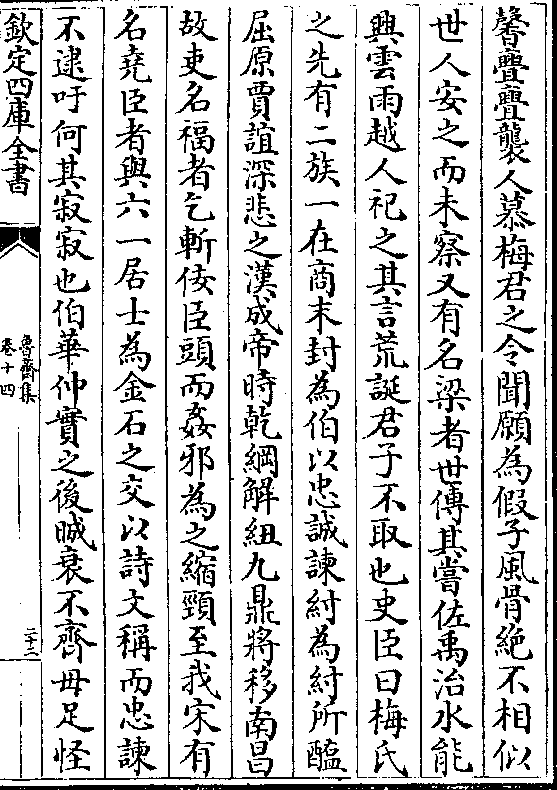 馨亹亹襲人慕梅君之令聞願為假子風骨絶不相似
世人安之而未察又有名梁者世傳其嘗佐禹治水能
興雲雨越人祀之其言荒誕君子不取也史臣曰梅氏
之先有二族一在商末封為伯以忠誠諫紂為紂所醢
屈原賈誼深悲之漢成帝時乾綱解紐九鼎將移南昌
故吏名福者乞斬佞臣頭而姦邪為之縮頸至我宋有
名堯臣者與六一居士為金石之交以詩文稱而忠諫
不逮吁何其寂寂也伯華仲實之後瑊衰不齊毋足怪
欽定四庫全書
魯齋集
卷十四
二十二